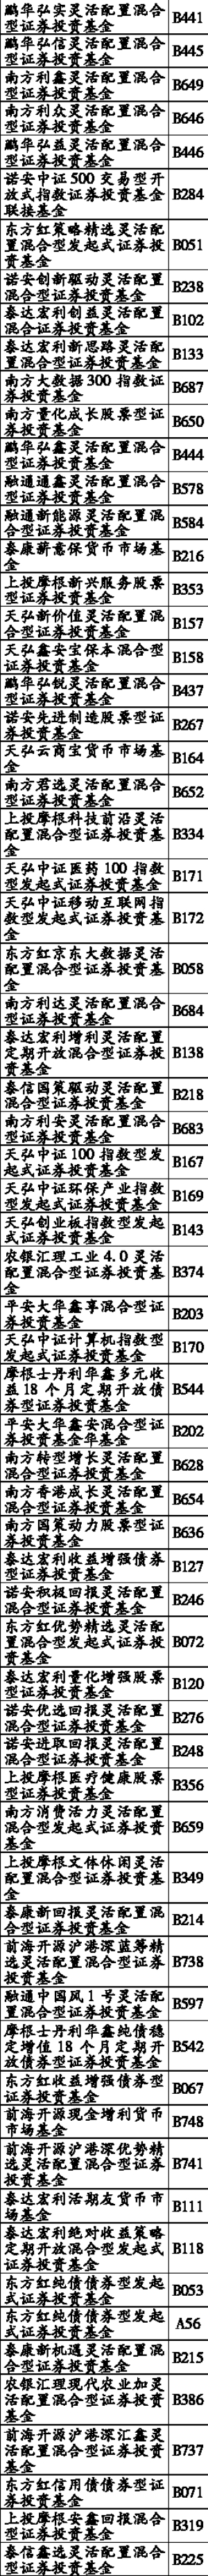 鹏华弘实灵活配置混合
型证券投资基金
B441
鹏华弘信灵活配置混合
型证券投资基金
B445
南方利鑫灵活配置混合
型证券投资基金
B649
南方利众灵活配置混合
型证券投资基金
B646
鹏华弘益灵活配置混合
型证券投资基金
B446
诺安中证500交易型开
放式指数证券投资基金
联接基金
B284
东方红策略精选灵活配
置混合型发起式证券投
资基金
B051
诺安创新驱动灵活配置
混合型证券投资基金
B238
泰达宏利创益灵活配置
混合证券投资基金
B102
泰达宏利新思路灵活配
置混合型证券投资基金
B133
南方大数据300指数证
券投资基金
B687
南方量化成长股票型证
券投资基金
B650
鹏华弘鑫灵活配置混合
型证券投资基金
B444
融通通鑫灵活配置混合
型证券投资基金
B578
融通新能源灵活配置混
合型证券投资基金
B584
泰康薪意保货币市场基
金
B216
上投摩根新兴服务股票
型证券投资基金
B353
天弘新价值灵活配置混
合型证券投资基金
B157
天弘鑫安宝保本混合型
证券投资基金
B158
鹏华弘锐灵活配置混合
型证券投资基金
B437
诺安先进制造股票型证
券投资基金
B267
天弘云商宝货币市场基
金
B164
南方君选灵活配置混合
型证券投资基金
B652
上投摩根科技前沿灵活
配置混合型证券投资基
金
B334
天弘中证医药100指数
型发起式证券投资基金
B171
天弘中证移动互联网指
数型发起式证券投资基
金
B172
东方红京东大数据灵活
配置混合型证券投资基
金
B058
南方利达灵活配置混合
型证券投资基金
B684
泰达宏利增利灵活配置
定期开放混合型证券投
资基金
B138
泰信国策驱动灵活配置
混合型证券投资基金
B218
南方利安灵活配置混合
型证券投资基金
B683
天弘中证100指数型发
起式证券投资基金
B167
天弘中证环保产业指数
型发起式证券投资基金
B169
天弘创业板指数型发起
式证券投资基金
B143
农银汇理工业4.0灵活
配置混合型证券投资基
金
B374
平安大华鑫享混合型证
券投资基金
B203
天弘中证计算机指数型
发起式证券投资基金
B170
摩根士丹利华鑫多元收
益18个月定期开放债
券型证券投资基金
B544
平安大华鑫安混合型证
券投资基金华基金
B202
南方转型增长灵活配置
混合型证券投资基金
B628
南方香港成长灵活配置
混合型证券投资基金
B654
南方国策动力股票型证
券投资基金
B636
泰达宏利收益增强债券
型证券投资基金
B127
诺安积极回报灵活配置
混合型证券投资基金
B246
东方红优势精选灵活配
置混合型发起式证券投
资基金
B072
泰达宏利量化增强股票
型证券投资基金
B120
诺安优选回报灵活配置
混合型证券投资基金
B276
诺安进取回报灵活配置
混合型证券投资基金
B248
上投摩根医疗健康股票
型证券投资基金
B356
南方消费活力灵活配置
混合型发起式证券投资
基金
B659
上投摩根文体休闲灵活
配置混合型证券投资基
金
B349
泰康新回报灵活配置混
合型证券投资基金
B214
前海开源沪港深蓝筹精
选灵活配置混合型证券
投资基金
B738
融通中国风1号灵活配
置混合型证券投资基金
B597
摩根士丹利华鑫纯债稳
定增值18个月定期开
放债券型证券投资基金
B542
东方红收益增强债券型
证券投资基金
B067
前海开源现金增利货币
市场基金
B748
前海开源沪港深优势精
选灵活配置混合型证券
投资基金
B741
泰达宏利活期友货币市
场基金
B111
泰达宏利绝对收益策略
定期开放混合型发起式
证券投资基金
B118
东方红纯债债券型发起
式证券投资基金
B053
东方红纯债债券型发起
式证券投资基金
A56
泰康新机遇灵活配置混
合型证券投资基金
B215
农银汇理现代农业加灵
活配置混合型证券投资
基金
B386
前海开源沪港深汇鑫灵
活配置混合型证券投资
基金
B737
东方红信用债债券型证
券投资基金
B071
上投摩根安鑫回报混合
型证券投资基金
B319
泰信鑫选灵活配置混合
型证券投资基金
B225